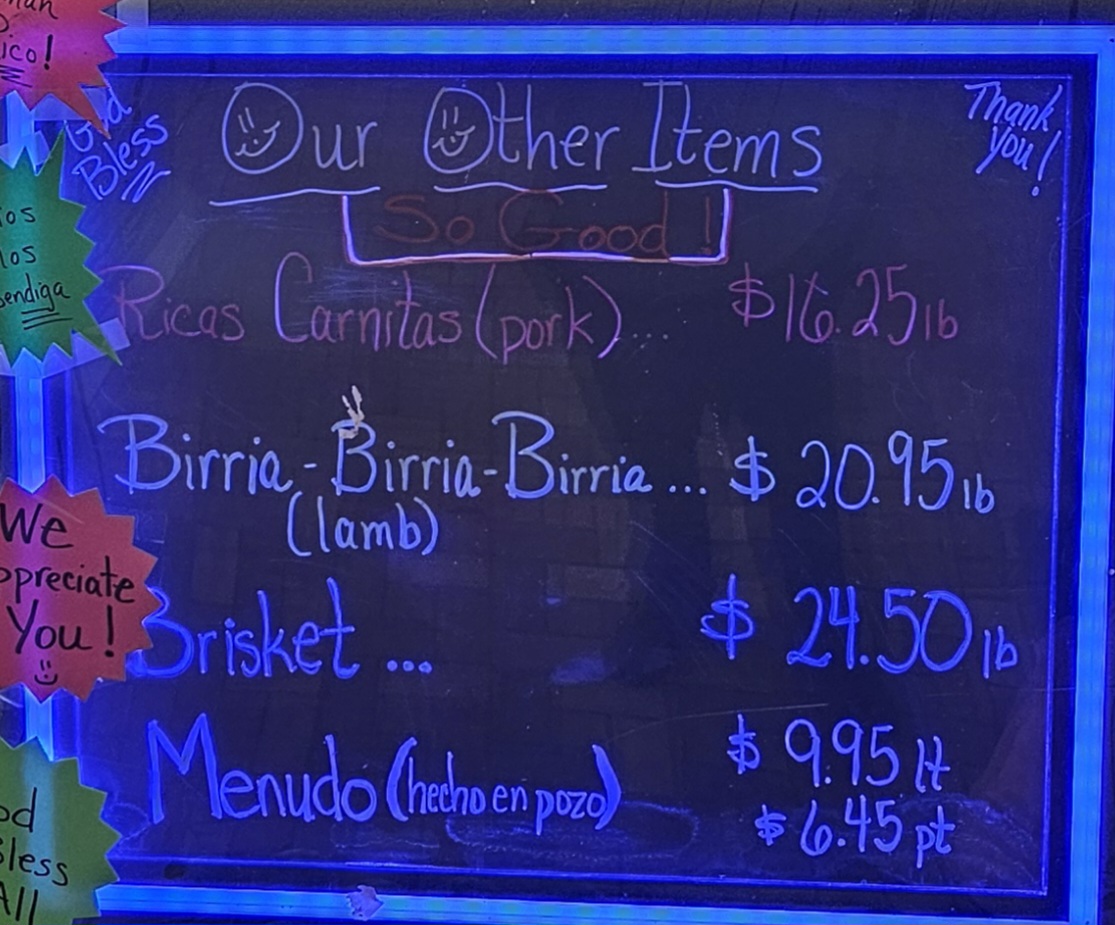 ico!
God
Bless
Our Other Items
Thank
You!
So Good!
Ricas Carnitas (pork)... $16.25 lb
los
endiga
Birria-Birria-Birria... $20.95 lb
(lamb)
We
ppreciate
You!
Brisket ... $24.50 lb
Menudo (hecho en pozo) $9.95 lt
$6.45 pt
od
Bless
All